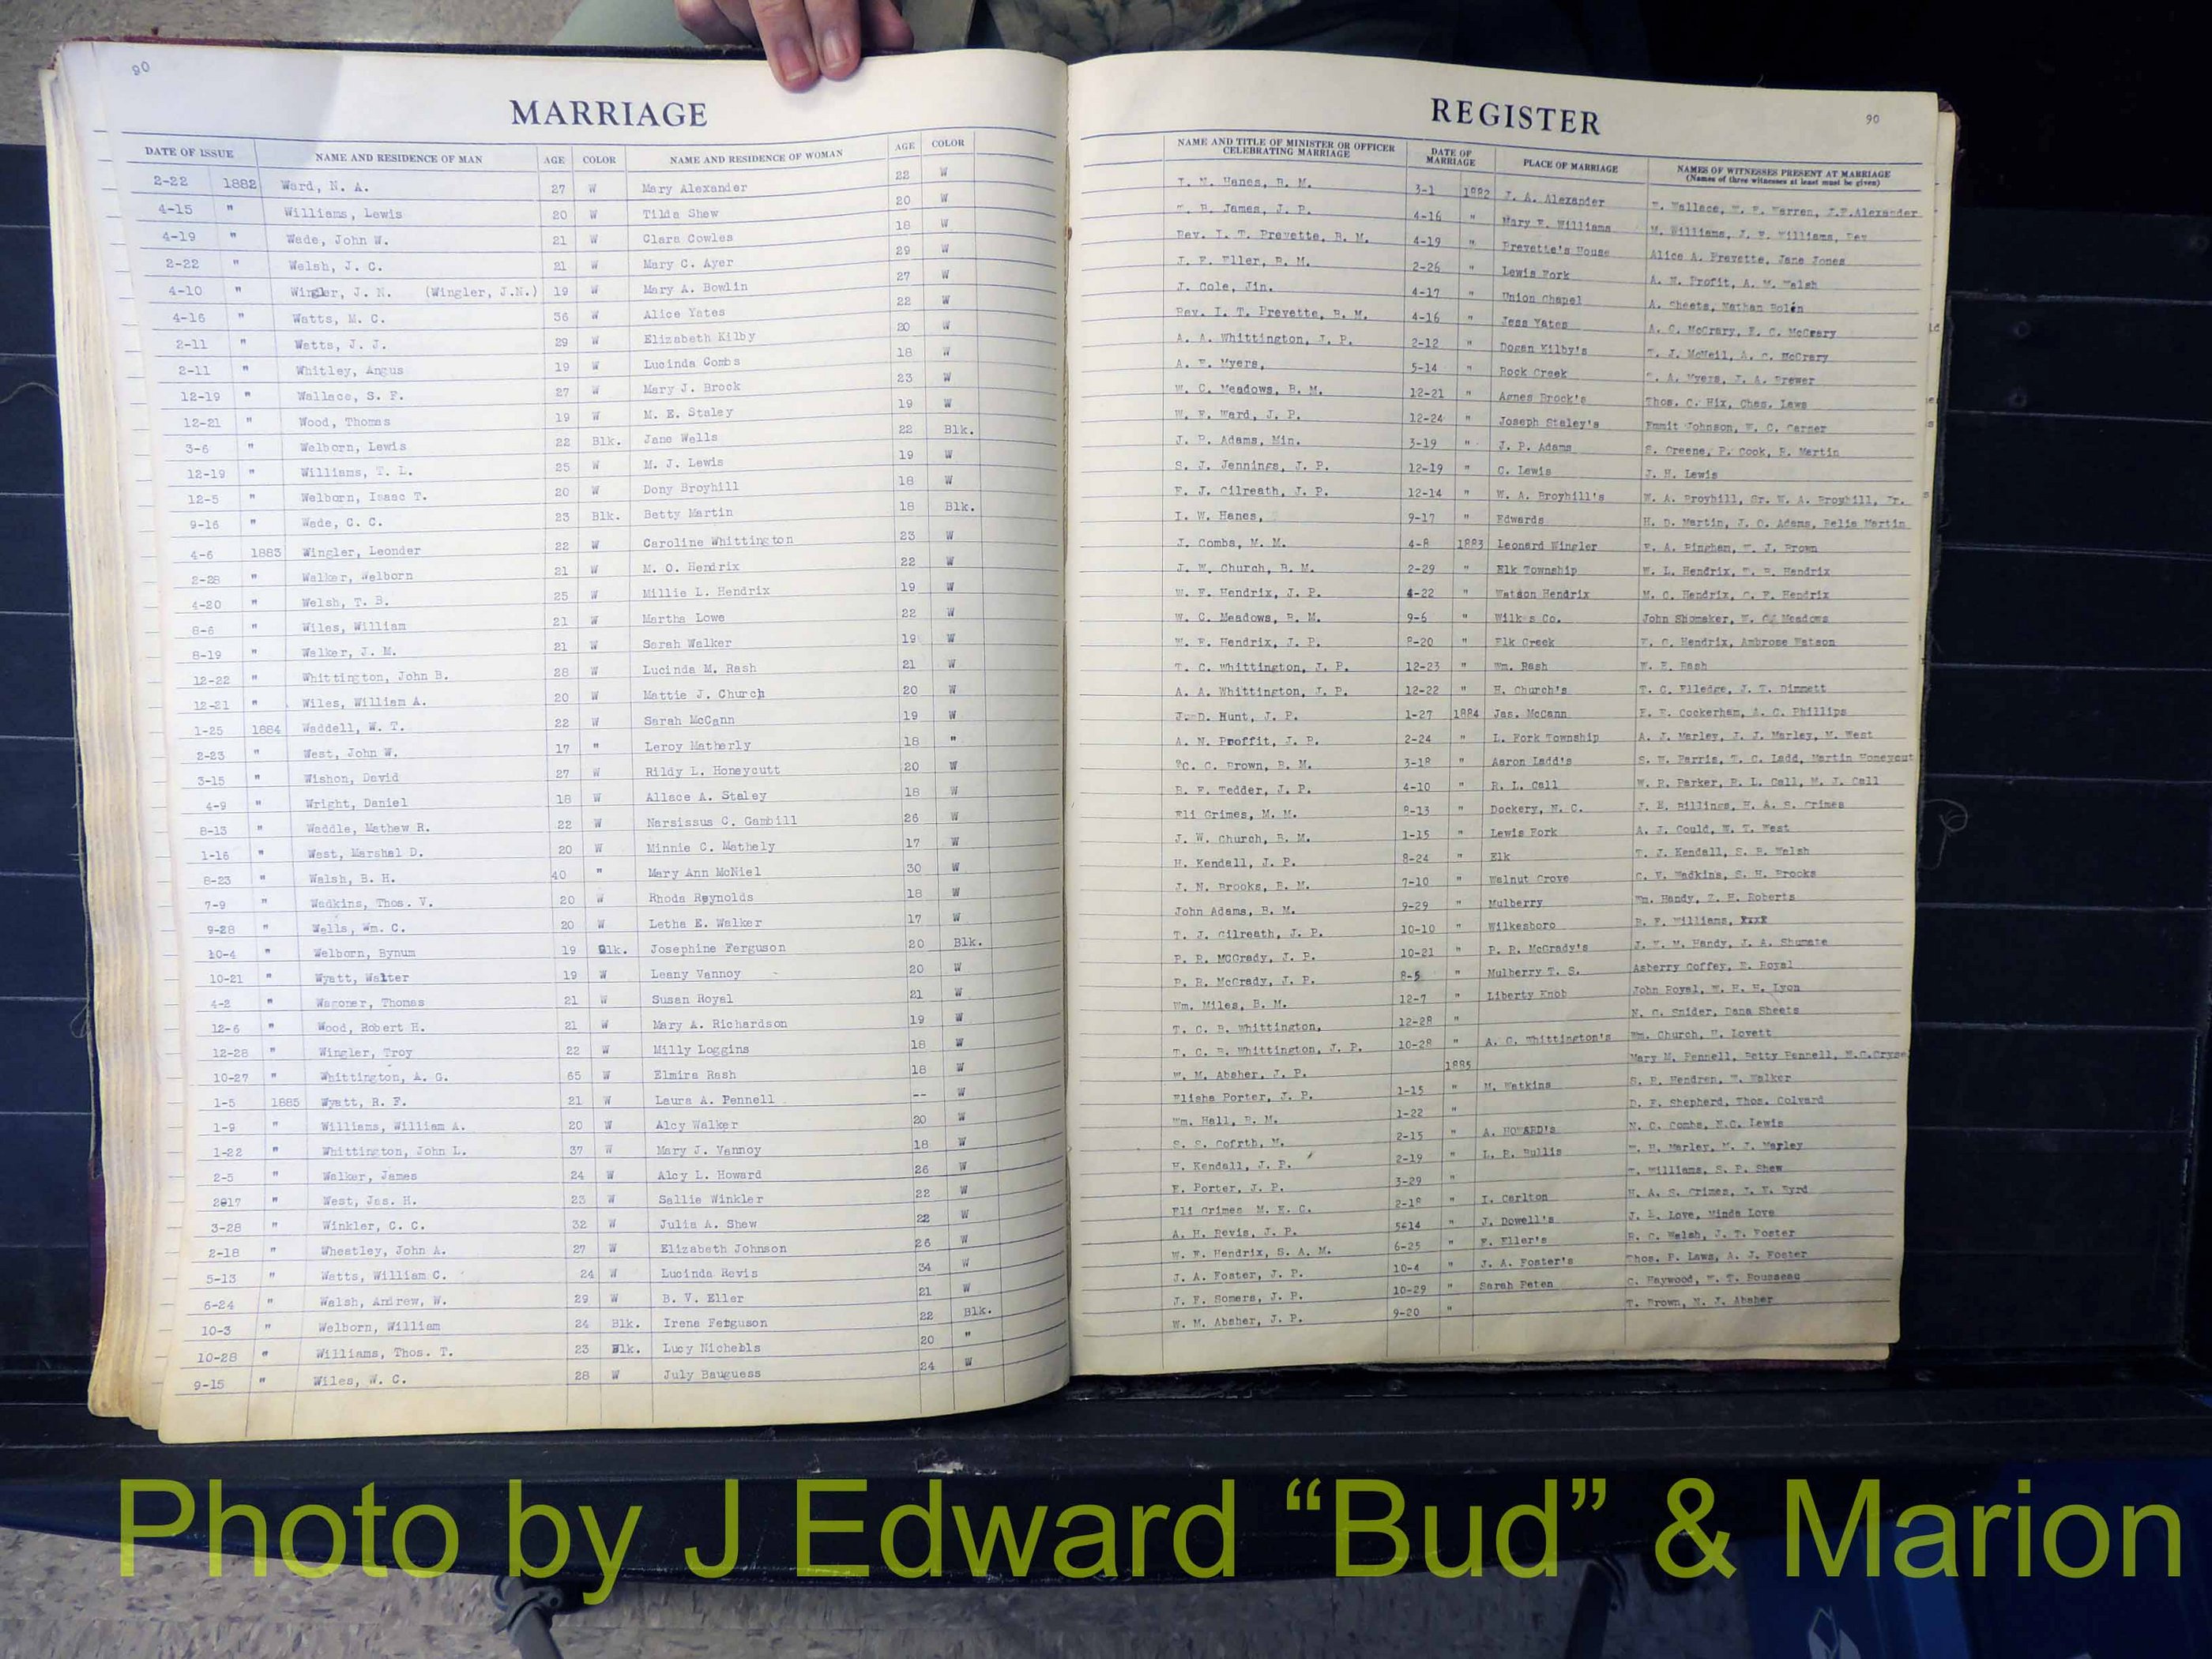 90
MARRIAGE
DATE OF ISSUE NAME AND RESIDENCE OF MAN AGE COLOR NAME AND RESIDENCE OF WOMAN AGE COLOR
2-22 1882 Ward, N. A. 27 W Mary Alexander 22 W
4-15 " Williams, Lewis 20 W Tilda Shew 20 W
4-19 " Wade, John W. 21 W Clara Cowles 18 W
2-22 " Welsh, J. C. 21 W Mary C. Ayer 29 W
4-10 " Wingler, J. N. (Wingler, J.N.) 19 W Mary A. Bowlin 27 W
4-16 " Watts, M. C. 36 W Alice Yates 22 W
2-11 " Watts, J. J. 29 W Elizabeth Kilby 20 W
2-11 " Whitley, Angus 19 W Lucinda Combs 18 W
12-19 " Wallace, S. F. 27 W Mary J. Brock 23 W
12-21 " Wood, Thomas 19 W M. E. Staley 19 W
3-6 " Welborn, Lewis 22 Blk. Jane Wells 22 Blk.
12-19 " Williams, T. L. 25 W M. J. Lewis 19 W
12-5 " Welborn, Isaac T. 20 W Dony Broyhill 18 W
9-16 " Wade, C. C. 23 Blk. Betty Martin 18 Blk.
4-6 1883 Wingler, Leonder 22 W Caroline Whittington 23 W
2-28 " Walker, Welborn 21 W M. O. Hendrix 22 W
4-20 " Welsh, T. B. 25 W Millie L. Hendrix 19 W
8-6 " Wiles, William 21 W Martha Lowe 22 W
8-19 " Walker, J. M. 21 W Sarah Walker 19 W
12-22 " Whittington, John B. 28 W Lucinda M. Rash 21 W
12-21 " Wiles, William A. 20 W Mattie J. Church 20 W
1-25 1884 Waddell, W. T. 22 W Sarah McCann 19 W
2-23 " West, John W. 17 " Leroy Matherly 18 "
3-15 " Wishon, David 27 W Rildy L. Honeycutt 20 W
4-9 " Wright, Daniel 18 W Allace A. Staley 18 W
8-13 " Waddle, Mathew R. 22 W Narsissus C. Gambill 26 W
1-16 " West, Marshal D. 20 W Minnie C. Mathely 17 W
8-23 " Walsh, B. H. 40 " Mary Ann McNiel 30 W
7-9 " Wadkins, Thos. V. 20 W Rhoda Reynolds 18 W
9-28 " Wells, Wm. C. 20 W Letha E. Walker 17 W
10-4 " Welborn, Bynum 19 Blk. Josephine Ferguson 20 Blk.
10-21 " Wyatt, Walter 19 W Leany Vannoy 20 W
4-2 " Wagoner, Thomas 21 W Susan Royal 21 W
12-6 " Wood, Robert H. 21 W Mary A. Richardson 19 W
12-28 " Wingler, Troy 22 W Milly Loggins 18 W
10-27 " Whittington, A. G. 65 W Elmira Rash 18 W
1-5 1885 Wyatt, R. F. 21 W Laura A. Pennell -- W
1-9 " Williams, William A. 20 W Alcy Walker 20 W
1-22 " Whittington, John L. 37 W Mary J. Vannoy 18 W
2-5 " Walker, James 24 W Alcy L. Howard 26 W
2017 " West, Jas. H. 23 W Sallie Winkler 22 W
3-28 " Winkler, C. C. 32 W Julia A. Shew 22 W
2-18 " Wheatley, John A. 27 W Elizabeth Johnson 26 W
5-13 " Watts, William C. 24 W Lucinda Revis 34 W
6-24 " Walsh, Andrew, W. 29 W B. V. Eller 21 W
10-3 " Welborn, William 24 Blk. Irene Ferguson 22 Blk.
10-28 " Williams, Thos. T. 23 Blk. Lucy Nichols 20 "
9-15 " Wiles, W. C. 28 W July Bauguess 24 W
REGISTER 90
NAME AND TITLE OF MINISTER OR OFFICER CELEBRATING MARRIAGE DATE OF MARRIAGE PLACE OF MARRIAGE NAMES OF WITNESSES PRESENT AT MARRIAGE
(Names of three witnesses at least must be given)
Hanes, B. M. 3-1 1882 J. A. Alexander Wallace, Warren, J.F.Alexander
B. James, J. P. 4-16 " Mary E. Williams M. Williams, J. F. Williams,
Rev. I. T. Prevette, B. M. 4-19 " Prevette's House Alice A. Prevette, Jane Jones
J. F. Eller, B. M. 2-26 " Lewis Fork A. N. Profit, A. M. Welsh
J. Cole, Jin. 4-17 " Union Chapel A. Sheets, Nathan Bolen
Rev. I. T. Prevette, B. M. 4-16 " Jess Yates A. C. McCrary, F. C. McCrery
A. A. Whittington, J. P. 2-12 " Dogan Kilby's T. J. McNeil, A. C. McCrary
A. F. Myers, 5-14 " Rock Creek A. Myers, J. A. Brewer
W. C. Meadows, B. M. 12-21 " Agnes Brock's Thos. C. Hix, Chas. Laws
W. F. Ward, J. P. 12-24 " Joseph Staley's Emmit Johnson, W. C. Garner
J. P. Adams, Min. 3-19 " J. P. Adams S. Greene, P. Cook, B. Martin
S. J. Jennings, J. P. 12-19 " C. Lewis J. H. Lewis
F. J. Gilreath, J. P. 12-14 " W. A. Broyhill's W. A. Broyhill, Sr. W. A. Broyhill, Jr.
I. W. Hanes, 9-17 " Edwards H. D. Martin, J. O. Adams, Martin
J. Combs, M. M. 4-8 1883 Leonard Wingler F. A. Bingham, J. Brown
J. W. Church, B. M. 2-29 " Elk Township W. L. Hendrix, Hendrix
W. F. Hendrix, J. P. 4-22 " Watson Hendrix M. C. Hendrix, C. F. Hendrix
W. C. Meadows, B. M. 9-6 " Wilk s Co. John Shomaker, W. Meadows
W. F. Hendrix, J. P. 8-20 " Elk Creek Hendrix, Ambrose Watson
T. C. Whittington, J. P. 12-23 " Wm. Rash W. E. Rash
A. A. Whittington, J. P. 12-22 " H. Church's T. C. Elledge, J. T. Dimmett
J. D. Hunt, J. P. 1-27 1884 Jas. McCann Cockerham, A. C. Phillips
A. N. Proffit, J. P. 2-24 " L. Fork Township A. J. Marley, J. J. Marley, M. West
C. C. Brown, B. M. 3-18 " Aaron Ladd's S. W. Parris, T. C. Ladd, Martin Honeycut
B. F. Tedder, J. P. 4-10 " R. L. Call W. R. Parker, R. L. Call, M. J. Call
Eli Grimes, M. M. 8-13 " Dockery, N. C. J. E. Billings, H. A. S. Grimes
J. W. Church, B. M. 1-15 " Lewis Fork A. J. Gould, W. T. West
H. Kendall, J. P. 8-24 " Elk T. J. Kendall, S. E. Welsh
J. N. Brooks, B. M. 7-10 " Walnut Grove C. V. Wadkins, S. H. Brooks
John Adams, B. M. 9-29 " Mulberry Wm. Handy, Z. H. Roberts
T. J. Gilreath, J. P. 10-10 " Wilkesboro R. F. Williams,
P. R. McGrady, J. P. 10-21 " P. R. McGrady's J. W. M. Handy, J. A. Shumate
P. R. McGrady, J. P. 8-5 " Mulberry T. S. Asberry Coffey, E. Royal
Wm. Miles, B. M. 12-7 " Liberty Knob John Royal, W. H. H. Lyon
T. C. B. Whittington, 12-28 " N. C. Snider, Dana Sheets
T. C. B. Whittington, J. P. 10-28 " A. G. Whittington's Wm. Church, H. Lovett
W. M. Absher, J. P. 1885 Mary M. Pennell, Betty Pennell,
Elisha Porter, J. P. 1-15 " M. Watkins S. B. Hendren, W. Walker
Wm. Hall, B. M. 1-22 " D. F. Shepherd, Thos. Colvard
S. S. Gofrth, M. 2-15 " A. HOWARD's N. C. Combs, M.C. Lewis
H. Kendall, J. P. 2-19 " L. P. Bullis W. H. Marley, M. J. Marley
E. Porter, J. P. 3-29 " T. Williams, S. P. Shew
Eli Grimes M. E. C. 2-18 " I. Carlton H. A. S. Grimes, J. F. Byrd
A. H. Revis, J. P. 5414 " J. Dowell's J. E. Love, Minda Love
W. F. Hendrix, S. A. M. 6-25 " F. Eller's R. C. Welsh, J. T. Foster
J. A. Foster, J. P. 10-4 " J. A. Foster's Thos. F. Laws, A. J. Foster
J. F. Somers, J. P. 10-29 " Sarah Peten C. Haywood, W. T. Rousseau
W. M. Absher, J. P. 9-20 " T. Brown, N. J. Absher
Photo by J Edward “Bud” & Marion